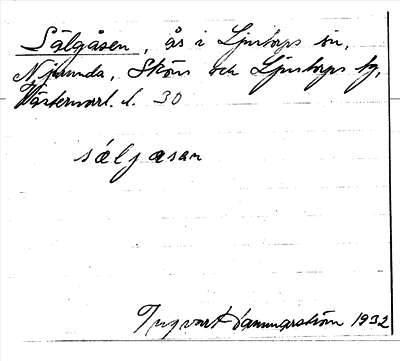 Sälgåsen, ås i Ljustorps sn,
Njurunda, Sköns och Ljustorps tg,
Västernorrl. l. 30
säljasan
Ingvart Hammarström 1932